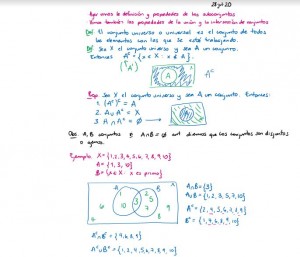 28-jul-20
propiedades de los subconjuntos
propiedades de la unión y la intersección de conjuntos
El conjunto universo o universal es el conjunto de todos
los elementos con los que se está trabajando.
Sea X el conjunto universo y sea A un conjunto.
Entonces A^c = {x ∈ X : x ∉ A}.
A
A^c
Sea X el conjunto universo y sea A un conjunto. Entonces:
1. (A^c)^c = A
2. A ∪ A^c = X
3. A ∩ A^c = ∅
Obs. A, B conjuntos A∩B = ∅ decimos que los conjuntos son disjuntos
o ajenos.
Ejemplo: X = {1,2,3,4,5,6,7,8,9,10}
A = {1,3,10}
B = {x ∈ X : x es primo}
A∩B = {3}
A∪B = {1,2,3,5,7,10}
A^c = {2,4,5,6,7,8,9}
B^c = {1,4,6,8,9,10}
A B X
1 10 3 2 5 7
6 4 8 9
A^c∩B^c = {4,6,8,9}
A^c∪B^c = {1,2,4,5,6,7,8,9,10}